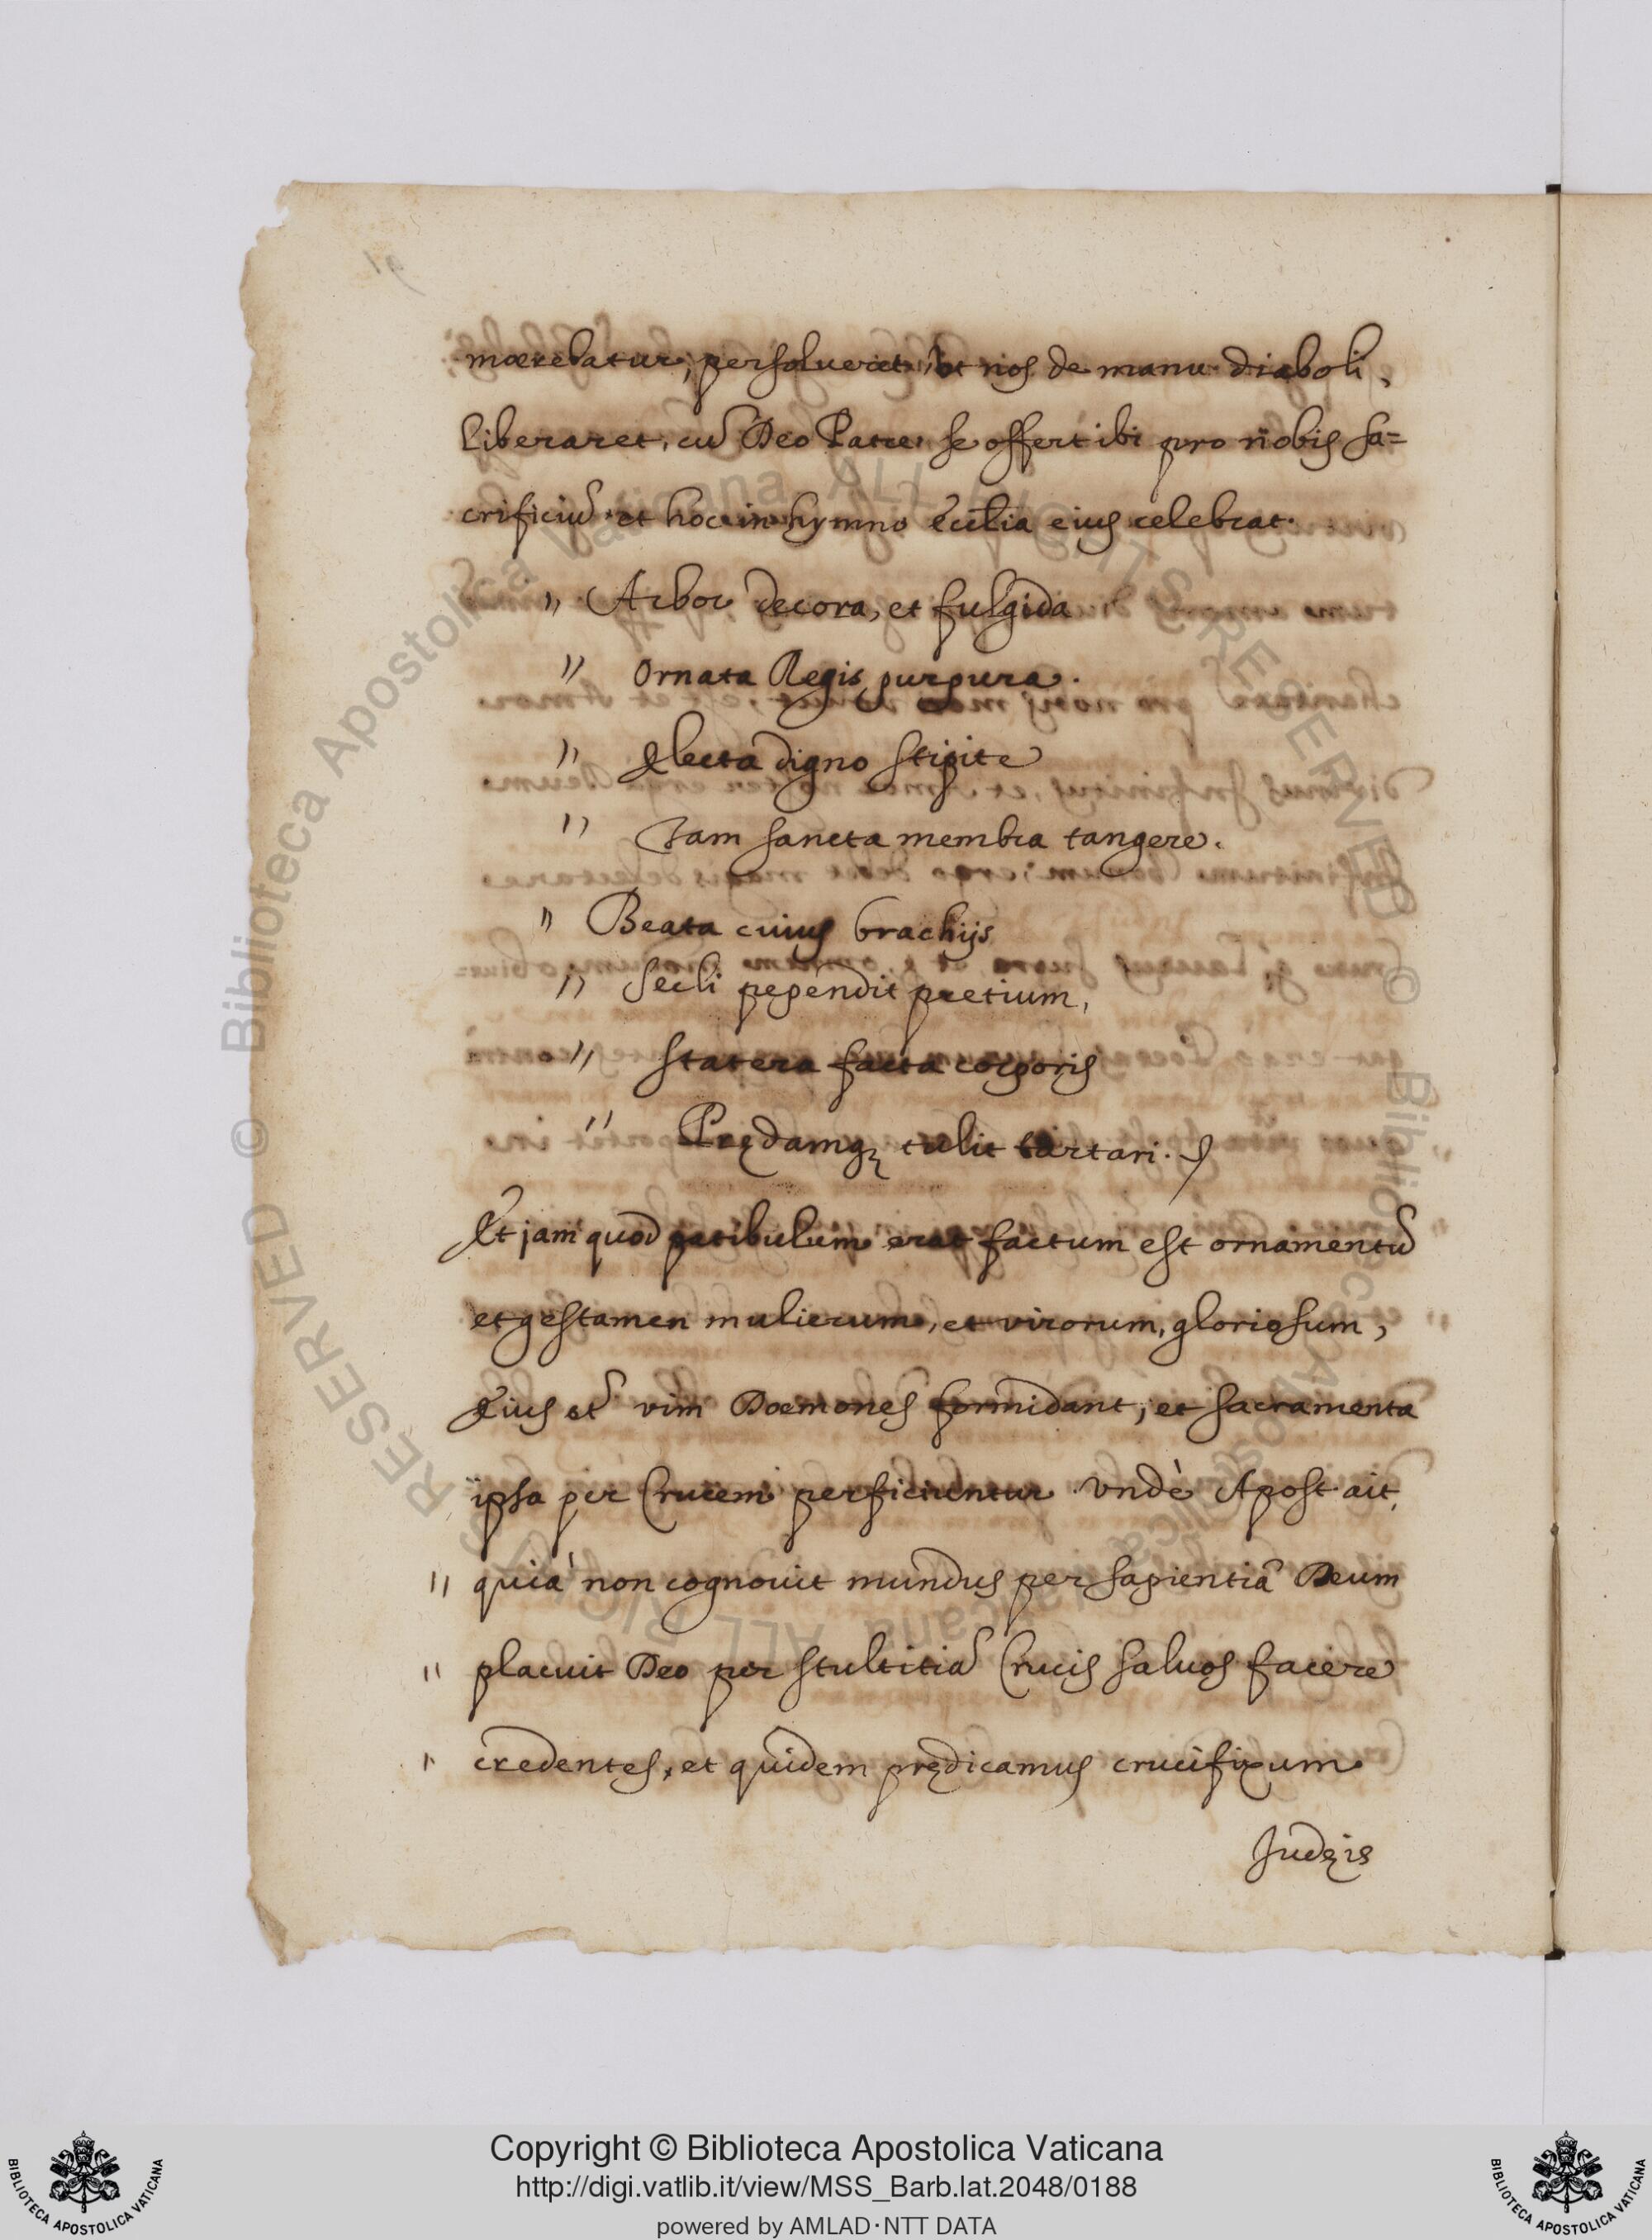 mœrebatur, persolueret, ut nos de manu diaboli,
liberaret, cũ Deo Patre se offert ibi pro nobis sa=
crificiũ et hoc in hymno ecc̃lia eius celebrat.
" Arbor decora, et fulgida
" Ornata Regis purpura.
" Electa digno stipite
" Tam sancta membra tangere.
" Beata cuius brachijs
" Secli pependit pretium,
" Statera facta corporis
" Prędamq; tulit tartari.
Et jam quod patibulum erat factum est ornamentũ
et gestamen mulierum, et virorum, gloriosum,
Eius et vim Dæmones formidant, et sacramenta
ipsa per Crucem perficiuntur. Vndè Apost. ait,
" quia non cognouit mundus per sapientiã Deum
" placuit Deo per stultitiã Crucis saluos facere
" credentes, et quidem prędicamus crucifixum
Judęis
© Biblioteca Apostolica Vaticana ALL RIGHTS RESERVED
© Biblioteca Apostolica Vaticana ALL RIGHTS RESERVED
Copyright © Biblioteca Apostolica Vaticana
http://digi.vatlib.it/view/MSS_Barb.lat.2048/0188
powered by AMLAD·NTT DATA
BIBLIOTECA APOSTOLICA VATICANA
BIBLIOTECA APOSTOLICA VATICANA